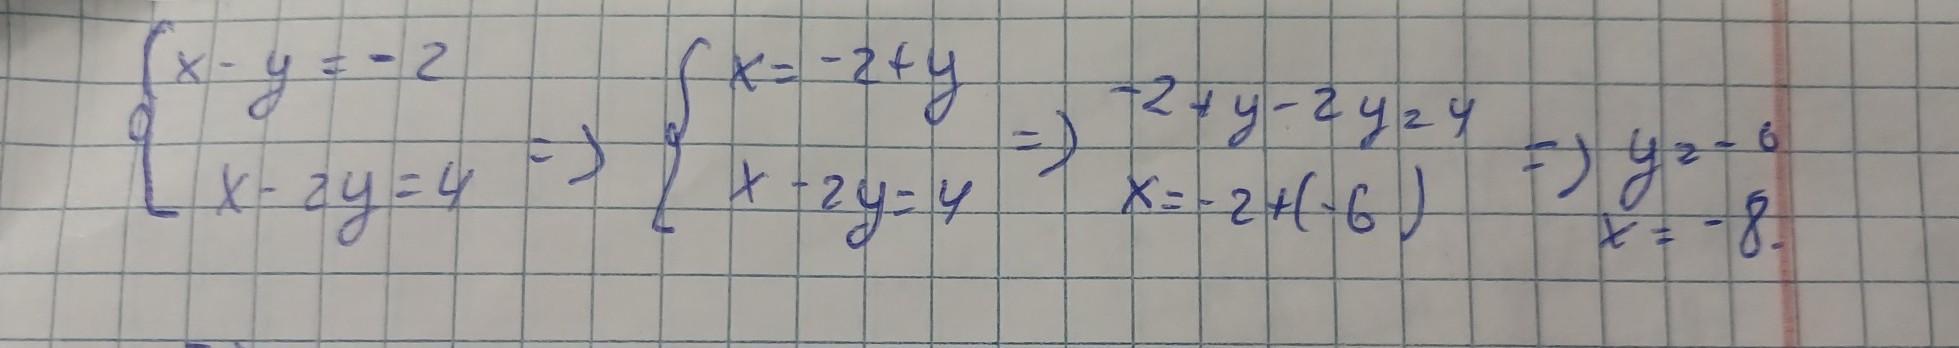 x - y = -2
x - 2y = 4
=>
x = -2 + y
x - 2y = 4
=>
-2 + y - 2y = 4
x = -2 + (-6)
=>
y = -6
x = -8.